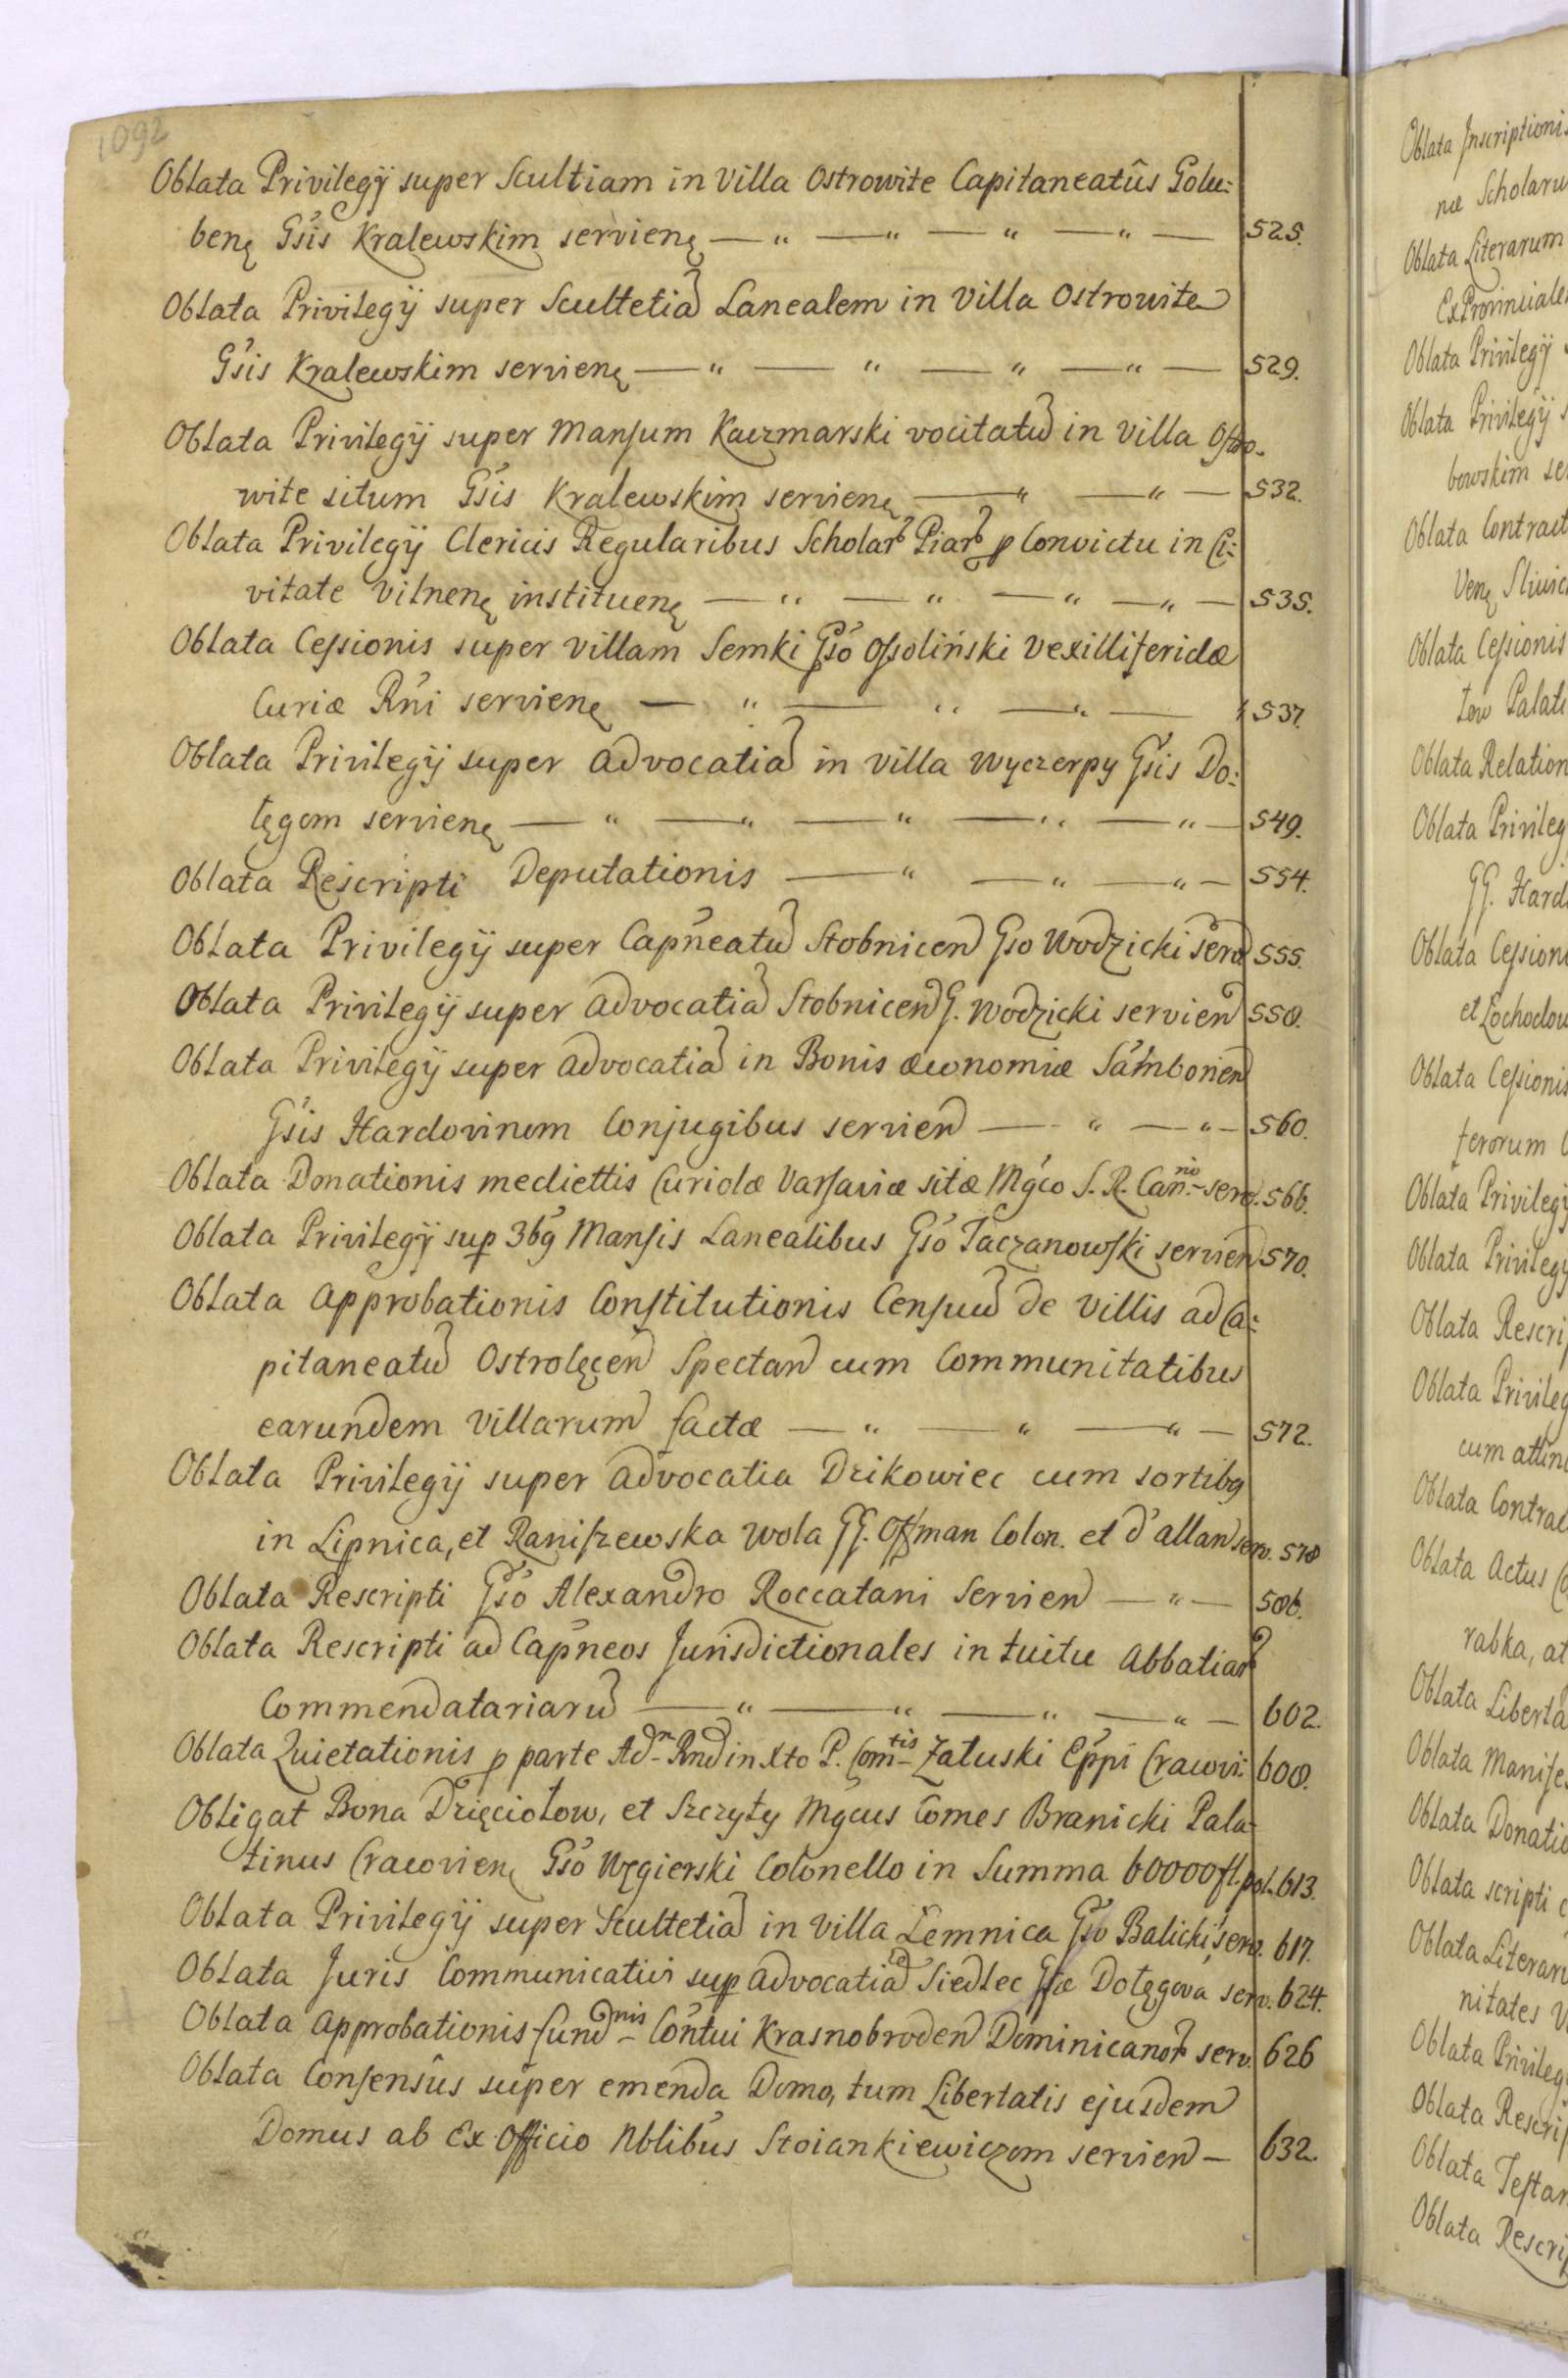 1092
Oblata Privilegÿ super Scultiam in Villa Ostrowite Capitaneatûs Golu:
benę Gsis Kralewskim servienę — „ — „ — „ — „ — 525.
Oblata Privilegÿ super Scultetiã Lanealem in Villa Ostrowite
Gsis Kralewskim servienę — „ — „ — „ — „ — 529.
Oblata Privilegÿ super Mansum Kaczmarski vocitatũ in Villa Ostro-
wite situm Gsis Kralewskim servienę — „ — „ — 532.
Oblata Privilegÿ Clericis Regularibus Scholar Piar p Convictu in Ci:
vitate Vilnenę instituenę — „ — „ — „ — „ — 535.
Oblata Cessionis super villam Semki Gso Ossoliński Vexilliferidæ
Curiæ Rni servienę — „ — „ — „ — 537.
Oblata Privilegÿ super advocatiã in villa Wyczerpy Gsis Do:
łęgom servienę — „ — „ — „ — „ — „ — 549.
Oblata Rescripti Deputationis — „ — „ — „ — 554.
Oblata Privilegÿ super Capneatũ Stobnicen Gso Wodzicki serv 555.
Oblata Privilegÿ super advocatiã Stobnicen G. Wodzicki servien 558.
Oblata Privilegÿ super advocatiã in Bonis œconomiæ Samborien
Gsis Hardovinom Conjugibus servien — „ — „ — 560.
Oblata Donationis mediettis Curiolæ Varsaviæ sitæ Mgco S. R. Can.no serv. 566.
Oblata Privilegÿ sup 3bg Mansis Lanealibus Gso Taczanowski servien 570.
Oblata approbationis Constitutionis Censuũ de villis ad Ca:
pitaneatũ Ostrolęcen Spectan cum Communitatibus
earundem Villarum factæ — „ — „ — „ — 572.
Oblata Privilegÿ super advocatia Dzikowiec cum sortibg
in Lipnica, et Raniszewska Wola GG. Offman Colon. et d'allan serv. 578
Oblata Rescripti Gso Alexandro Roccatani Servien — „ — 586.
Oblata Rescripti ad Capneos Jurisdictionales intuitu Abbatiar
Commendatariarũ — „ — „ — „ — „ — 602.
Oblata Quietationis p parte Adm Rnd in Xto P. Comtis Załuski Eppi Cracovi: 608.
Obligat Bona Dzięciołow, et Szczyty Mgcus Comes Branicki Pala-
tinus Cracovienę Gso Węgierski Colonello in Summa 60000 fl. pol. 613.
Oblata Privilegÿ super Scultetiã in Villa Lemnica Gso Balicki serv. 617.
Oblata Juris Communicativi sup advocatiã Siedlec Gsæ Dołęgova serv. 624.
Oblata approbationis fundnis Contui Krasnobroden Dominicanor serv. 626
Oblata Consensûs super emenda Domo, tum Libertatis ejusdem
Domus ab Ex Officio Nblibus Stoiankiewiczom servien — 632.
Oblata Inscriptionis
næ Scholaru
Oblata Literarum
Ex Provinciale
Oblata Privilegÿ
Oblata Privilegÿ s
bowskim se
Oblata Contract
Oblata Cessionis
tow Palati
Oblata Relation
Oblata Privileg
GG. Hard
Oblata Cession
Oblata Cessionis
ferorum
Oblata Privilegÿ
Oblata Privilegy
Oblata Rescrip
Oblata Privileg
cum attin
Oblata Contrac
Oblata Actus
rabka, at
Oblata Liberta
Oblata Manife
Oblata Donatio
Oblata scripti
Oblata Literaru
nitates
Oblata Privileg
Oblata Rescrip
Oblata Testam
Oblata Rescrip